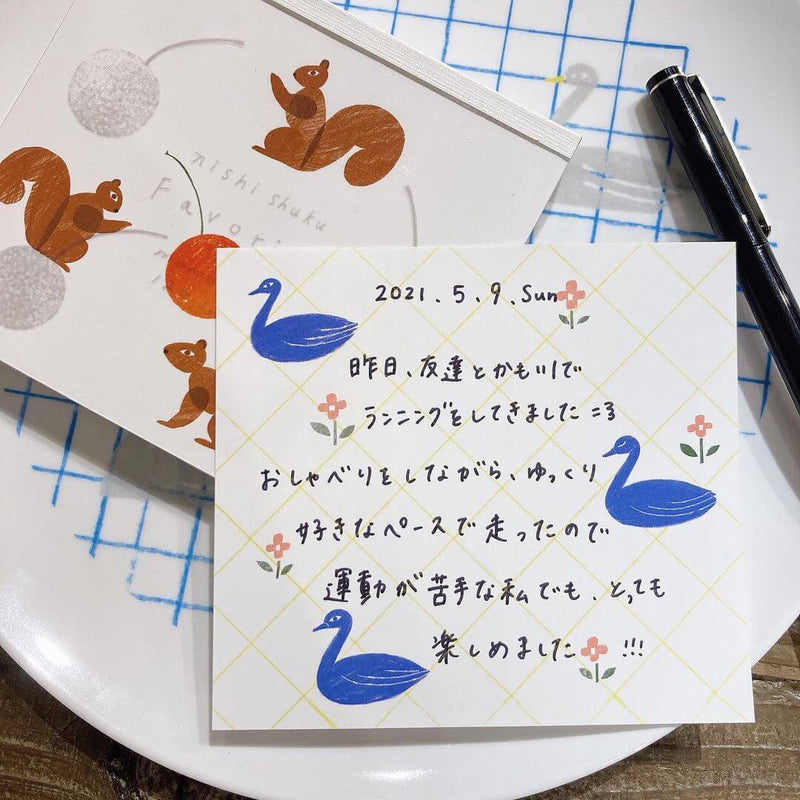 nishi shuku
Favori
2021.5.9.Sun
昨日、友達とかもめで
ランニングをしてきました=3
おしゃべりをしながら、ゆっくり
好きなペースで走ったので
運動が苦手な私でも、とっても
楽しめました!!!